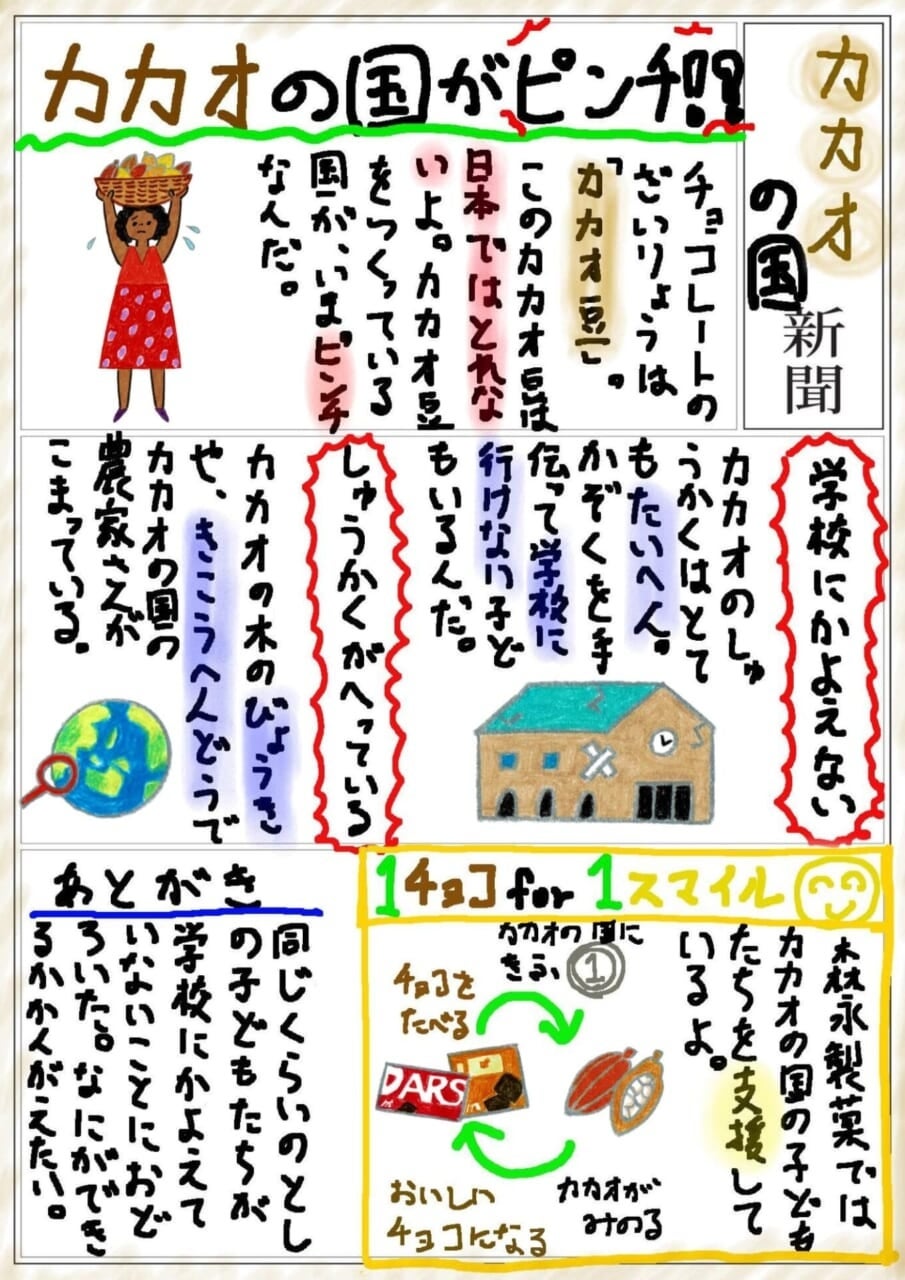 カカオ
の国
新聞
カカオの国がピンチ!?
チョコレートの
ざいりょうは
「カカオ豆」。
このカカオ豆は
日本ではとれな
いよ。カカオ豆
をつくっている
国が、いまピンチ
なんだ。
学校にかよえない
カカオのしゅ
うかくはとて
もたいへん。
かぞくを手
伝って学校に
行けない子ど
もいるんだ。
しゅうかくがへっている
カカオの木のびょうき
や、きこうへんどうで
カカオの国の
農家さんが
こまっている。
1チョコ for 1スマイル
森永製菓では
カカオの国の子ども
たちを支援して
いるよ。
カカオの国に
きふ
1
チョコを
たべる
DARS
カカオが
みのる
おいしい
チョコになる
あとがき
同じくらいのとし
の子どもたちが
学校にかよえて
いないことにおど
ろいた。なにができ
るかかんがえたい。